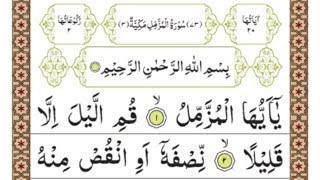 آيَاتُهَا ٢٠ (٧٣) سُوْرَةُ الْمُزَّمِّلِ مَكِّيَّةٌ (٣) رُكُوْعَاتُهَا ٢
بِسْمِ اللّٰهِ الرَّحْمٰنِ الرَّحِيْمِ
يٰۤاَيُّهَا الْمُزَّمِّلُ ۙ‏﴿۱﴾ قُمِ الَّيْلَ اِلَّا
قَلِيْلًا ۙ‏﴿۲﴾ نِّصْفَهٗۤ اَوِ انْقُصْ مِنْهُ